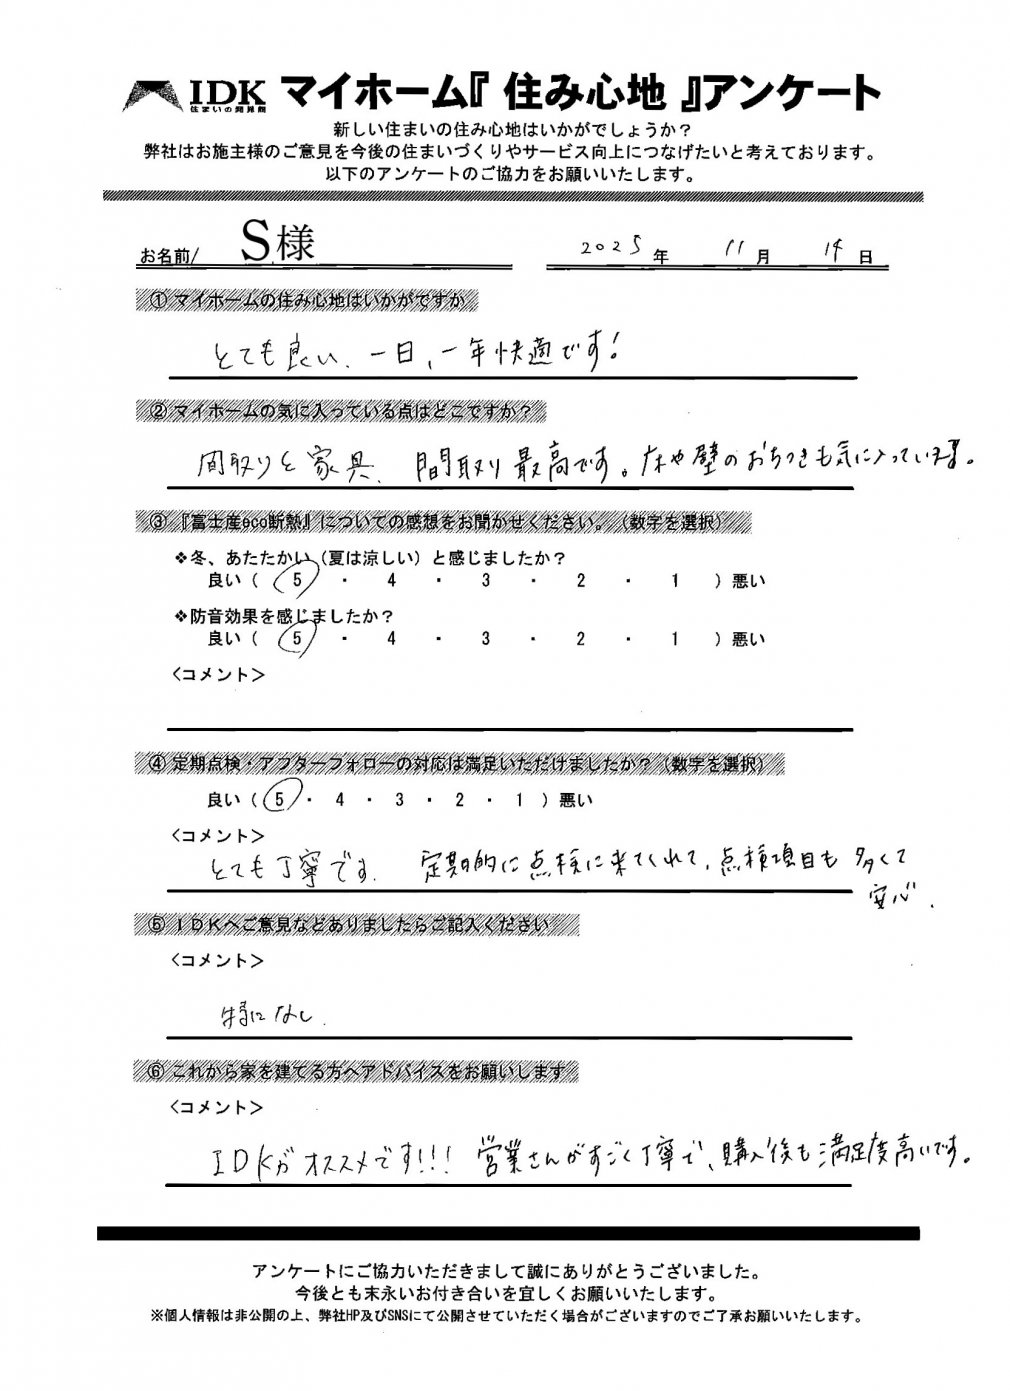 IDK 住まいの発見館 マイホーム『 住み心地 』アンケート
新しい住まいの住み心地はいかがでしょうか？
弊社はお施主様のご意見を今後の住まいづくりやサービス向上につなげたいと考えております。
以下のアンケートのご協力をお願いいたします。
お名前/ S様 2025年 11月 14日
① マイホームの住み心地はいかがですか
とても良い、一日、一年快適です！
② マイホームの気に入っている点はどこですか？
間取りと家具、間取り最高です。床や壁のおちつきも気に入っています。
③ 『富士産eco断熱』についての感想をお聞かせください。（数字を選択）
❖冬、あたたかい（夏は涼しい）と感じましたか？
良い（ 5 ・ 4 ・ 3 ・ 2 ・ 1 ）悪い
❖防音効果を感じましたか？
良い（ 5 ・ 4 ・ 3 ・ 2 ・ 1 ）悪い
＜コメント＞
④ 定期点検・アフターフォローの対応は満足いただけましたか？（数字を選択）
良い（ 5 ・ 4 ・ 3 ・ 2 ・ 1 ）悪い
＜コメント＞
とても丁寧です。定期的に点検に来てくれて、点検項目も多くて
安心。
⑤ ＩＤＫへご意見などありましたらご記入ください
＜コメント＞
特になし。
⑥ これから家を建てる方へアドバイスをお願いします
＜コメント＞
IDKがオススメです!!! 営業さんがすごく丁寧で、購入後も満足度高いです。
アンケートにご協力いただきまして誠にありがとうございました。
今後とも末永いお付き合いを宜しくお願いいたします。
※個人情報は非公開の上、弊社HP及びSNSにて公開させていただく場合がございますのでご了承お願いいたします。